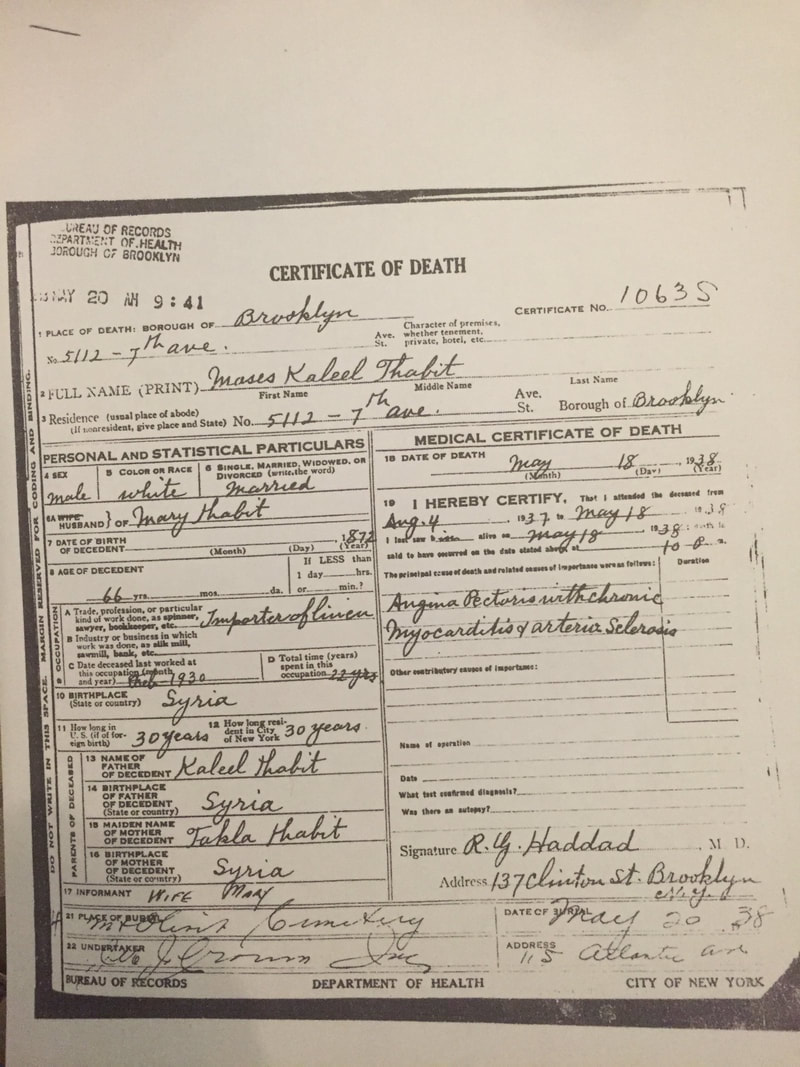 BUREAU OF RECORDS
DEPARTMENT OF HEALTH
BOROUGH OF BROOKLYN
CERTIFICATE OF DEATH
MAY 20 AM 9:41
CERTIFICATE No. 10635
1 PLACE OF DEATH: BOROUGH OF Brooklyn
Character of premises, whether tenement, private, hotel, etc.
No. 5112 - 7th ave. Ave. St.
2 FULL NAME (PRINT) Moses Kaleel Thabit
First Name Middle Name Last Name
3 Residence (usual place of abode) No. 5112 - 7th ave. Ave. St. Borough of Brooklyn
(If nonresident, give place and State)
PERSONAL AND STATISTICAL PARTICULARS
4 SEX male
5 COLOR OR RACE white
6 SINGLE, MARRIED, WIDOWED, OR DIVORCED (write the word) married
6A WIFE HUSBAND } OF Mary Thabit
7 DATE OF BIRTH OF DECEDENT 1872
(Month) (Day) (Year)
8 AGE OF DECEDENT
66 yrs. mos. da.
If LESS than 1 day hrs. or min.?
OCCUPATION
A Trade, profession, or particular kind of work done, as spinner, sawyer, bookkeeper, etc. Importer of linen
B Industry or business in which work was done, as silk mill, sawmill, bank, etc.
C Date deceased last worked at this occupation (month and year) 1930
D Total time (years) spent in this occupation 22 yrs
10 BIRTHPLACE (State or country) Syria
11 How long in U. S. (if of foreign birth) 30 years
12 How long resident in City of New York 30 years
PARENTS OF DECEASED
13 NAME OF FATHER OF DECEDENT Kaleel Thabit
14 BIRTHPLACE OF FATHER OF DECEDENT (State or country) Syria
15 MAIDEN NAME OF MOTHER OF DECEDENT Takla Thabit
16 BIRTHPLACE OF MOTHER OF DECEDENT (State or country) Syria
17 INFORMANT WIFE MARY
MEDICAL CERTIFICATE OF DEATH
18 DATE OF DEATH May 18, 1938
(Month) (Day) (Year)
19 I HEREBY CERTIFY, That I attended the deceased from
Aug. 4 1937 to May 18 1938
I last saw alive on May 18 1938
said to have occurred on the date stated above at
The principal cause of death and related causes of importance were as follows: Duration
Angina Pectoris with chronic
Myocarditis & arteria Sclerosis
Other contributory causes of importance:
Name of operation
Date
What test confirmed diagnosis?
Was there an autopsy?
Signature R. G. Haddad, M D.
Address 137 Clinton St. Brooklyn
N.Y.
21 PLACE OF BURIAL Mt Olivet Cemetery
DATE OF BURIAL May 20 38
22 UNDERTAKER
ADDRESS 115 Atlantic ave
BUREAU OF RECORDS DEPARTMENT OF HEALTH CITY OF NEW YORK
DO NOT WRITE IN THIS SPACE. MARGIN RESERVED FOR CODING AND BINDING.